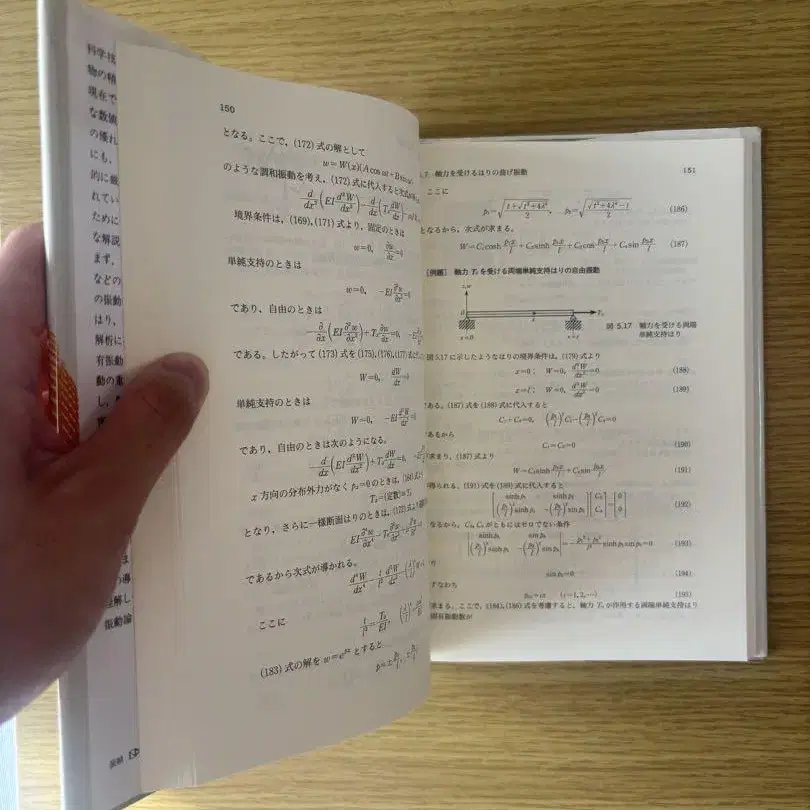 科学技
物の精
現在で
な数値
の優れ
にも、
的に厳
れてい
ために
な解説
ます。
などの
の振動
はり,
解析に
有振動
動の重
し,
の導
理解し
振動論
150
となる。ここで, (172) 式の解として
w=W(x)(A cos ωt+B sin ωt)
のような調和振動を考え, (172) 式に代入すると次式が
d²/dx²(EI d²W/dx²)−d/dx(Tₓ dW/dx)
境界条件は, (169), (171) 式より, 固定のときは
w=0, ∂w/∂x=0
単純支持のときは
w=0, −EI ∂²w/∂x²=0
であり, 自由のときは
−∂/∂x(EI ∂²w/∂x²)+Tₓ ∂w/∂x=0,
である。したがって (173) 式を (175), (176), (177) 式に
W=0, dW/dx=0
単純支持のときは
W=0, −EI d²W/dx²=0
であり, 自由のときは次のようになる。
−d/dx(EI d²W/dx²)+Tₓ dW/dx=0,
x 方向の分布外力がなく pₓ=0 のときは, (166) 式より
Tₓ=(定数)≡T₀
となり, さらに一様断面はりのときは, (172) 式より
であるから次式が導かれる。
ここに
1/l²=T₀/EI,
(183) 式の解を w=e とすると
5.7 軸力を受けるはりの曲げ振動 151
ここに
p₁=√((t+√(t²+4λ⁴))/2), p₂=√((√(t²+4λ⁴)−t)/2) (186)
となるから, 次式が求まる。
W=C₁cosh p₁x/l+C₂sinh p₁x/l+C₃cos p₂x/l+C₄sin p₂x/l (187)
[例題] 軸力 T₀ を受ける両端単純支持はりの自由振動
z,w
0
x
T₀
x=0
x=l
図 5.17 軸力を受ける両端
単純支持はり
図 5.17 に示したようなはりの境界条件は, (179) 式より
x=0: W=0, d²W/dx²=0 (188)
x=l: W=0, d²W/dx²=0 (189)
である。(187) 式を (188) 式に代入すると
C₁+C₃=0, (p₁/l)²C₁−(p₂/l)²C₃=0
であるから
C₁=C₃=0 (190)
求まり, (187) 式より
W=C₂sinh p₁x/l+C₄sin p₂x/l (191)
が得られる。(191) 式を (189) 式に代入すると
[sinh p₁ sin p₂; (p₁/l)² sinh p₁ −(p₂/l)² sin p₂][C₂; C₄]=[0; 0] (192)
なるから, C₂, C₄ がともにはゼロでない条件
|sinh p₁ sin p₂; (p₁/l)² sinh p₁ −(p₂/l)² sin p₂|=−(p₁²+p₂²)/l² sinh p₁ sin p₂=0 (193)
り
sin p₂=0 (194)
すなわち
p₂ᵢ=iπ (i=1, 2, …) (195)
求まる。ここで, (184), (186) 式を考慮すると, 軸力 T₀ が作用する両端単純支持はり
固有振動数が